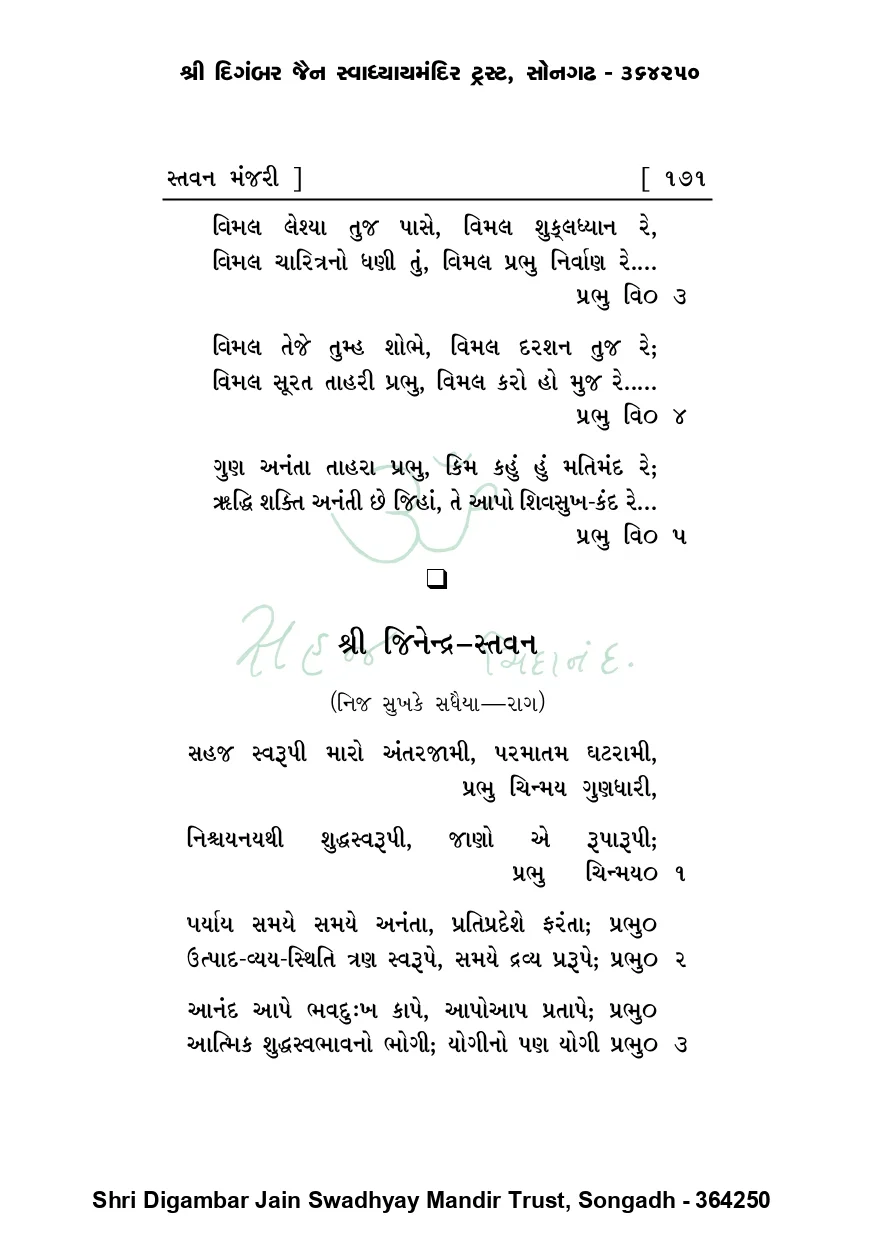 શ્રી દિગંબર જૈન સ્વાધ્યાયમંદિર ટ્રસ્ટ, સોનગઢ - ૩૬૪૨૫૦
સ્તવન મંજરી ] [ ૧૭૧
વિમલ લેશ્યા તુજ પાસે, વિમલ શુક્લધ્યાન રે,
વિમલ ચારિત્રનો ધણી તું, વિમલ પ્રભુ નિર્વાણ રે....
પ્રભુ વિ૦ ૩
વિમલ તેજે તુમ્હ શોભે, વિમલ દરશન તુજ રે;
વિમલ સૂરત તાહરી પ્રભુ, વિમલ કરો હો મુજ રે.....
પ્રભુ વિ૦ ૪
ગુણ અનંતા તાહરા પ્રભુ, કિમ કહું હું મતિમંદ રે;
ઋદ્ધિ શક્તિ અનંતી છે જિહાં, તે આપો શિવસુખ-કંદ રે...
પ્રભુ વિ૦ ૫
❑
શ્રી જિનેન્દ્ર–સ્તવન
સહજ ચિદાનંદ.
(નિજ સુખકે સધૈયા—રાગ)
સહજ સ્વરૂપી મારો અંતરજામી, પરમાતમ ઘટરામી,
પ્રભુ ચિન્મય ગુણધારી,
નિશ્ચયનયથી શુદ્ધસ્વરૂપી, જાણો એ રૂપારૂપી;
પ્રભુ ચિન્મય૦ ૧
પર્યાય સમયે સમયે અનંતા, પ્રતિપ્રદેશે ફરંતા; પ્રભુ૦
ઉત્પાદ-વ્યય-સ્થિતિ ત્રણ સ્વરૂપે, સમયે દ્રવ્ય પ્રરૂપે; પ્રભુ૦ ૨
આનંદ આપે ભવદુઃખ કાપે, આપોઆપ પ્રતાપે; પ્રભુ૦
આત્મિક શુદ્ધસ્વભાવનો ભોગી; યોગીનો પણ યોગી પ્રભુ૦ ૩
Shri Digambar Jain Swadhyay Mandir Trust, Songadh - 364250